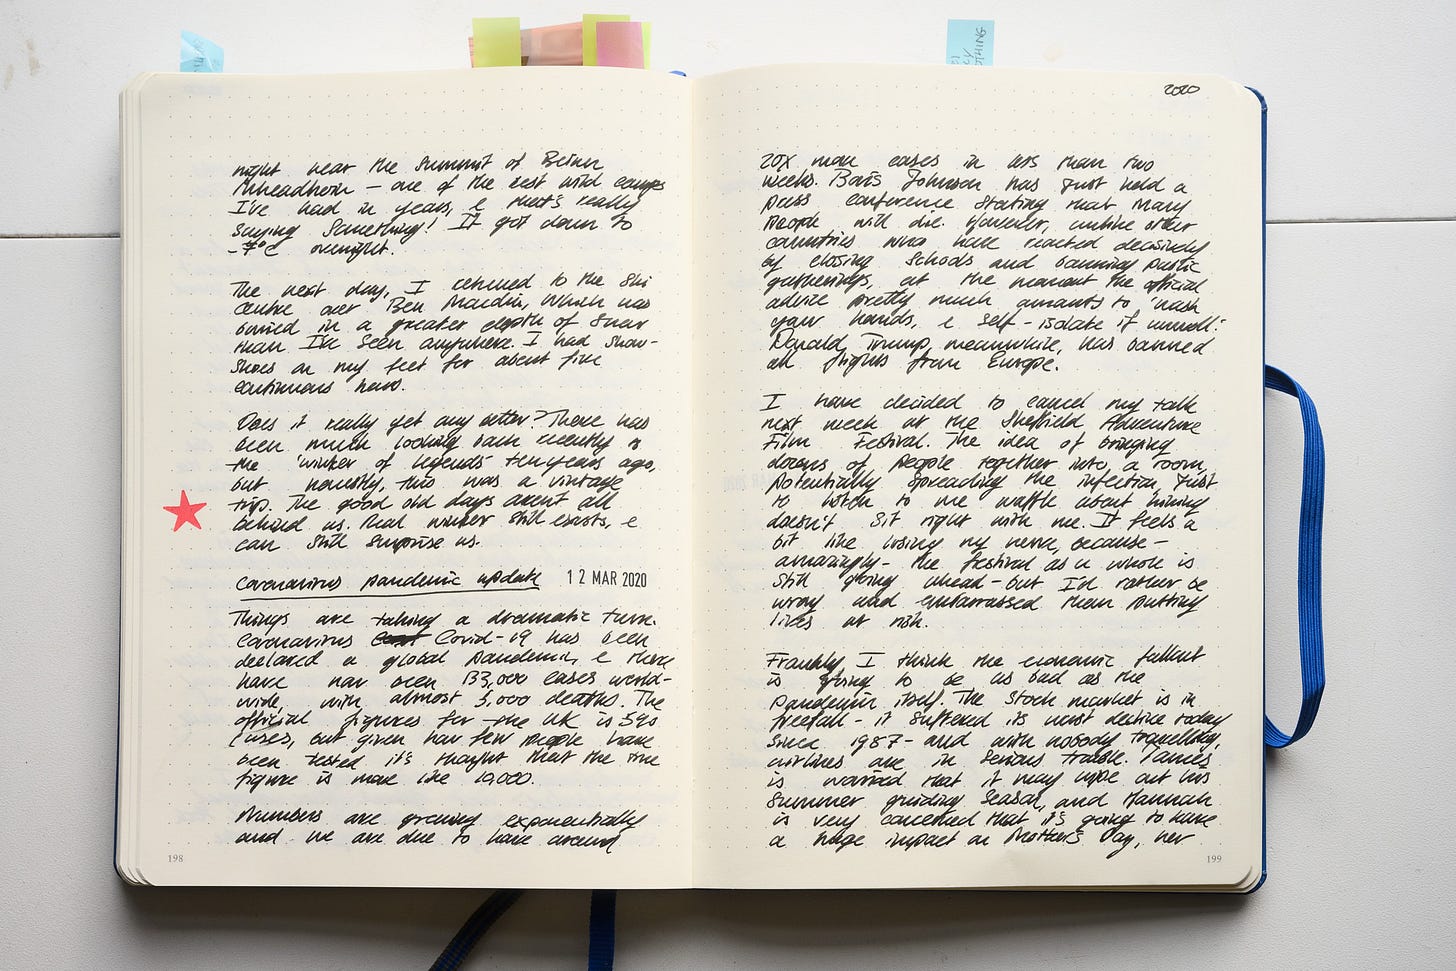 THING
2020
night near the summit of Beinn
Mheadhoin – one of the best wild camps
I've had in years, & that's really
saying something! It got down to
-7°C overnight.
The next day, I returned to the ski
centre over Ben Macdui, which was
buried in a greater depth of snow
than I've seen anywhere. I had snow-
shoes on my feet for about five
continuous hours.
Does it really get any better? There has
been much looking back recently to
the 'winter of legends' ten years ago,
but honestly, this was a vintage
trip. The good old days aren't all
behind us. Real winter still exists, &
can still surprise us.
Coronavirus pandemic update 12 MAR 2020
Things are taking a dramatic turn.
Coronavirus Covid-19 has been
declared a global pandemic, & there
have now been 133,000 cases world-
wide, with almost 5,000 deaths. The
official figures for the UK is 590
cases, but given how few people have
been tested it's thought that the true
figure is more like 10,000.
Numbers are growing exponentially
and we are due to have around
198
20X more cases in less than two
weeks. Boris Johnson has just held a
press conference stating that many
people will die. However, unlike other
countries who have reacted decisively
by closing schools and banning public
gatherings, at the moment the official
advice pretty much amounts to 'wash
your hands, & self-isolate if unwell.'
Donald Trump, meanwhile, has banned
all flights from Europe.
I have decided to cancel my talk
next week at the Sheffield Adventure
Film Festival. The idea of bringing
dozens of people together into a room,
potentially spreading the infection, just
to listen to me waffle about hiking
doesn't sit right with me. It feels a
bit like losing my nerve, because –
amazingly – the festival as a whole is
still going ahead – but I'd rather be
wrong and embarrassed than putting
lives at risk.
Frankly, I think the economic fallout
is going to be as bad as the
pandemic itself. The stock market is in
freefall – it suffered its worst decline today
since 1987 – and with nobody travelling,
airlines are in serious trouble. James
is worried that it may wipe out his
summer guiding season, and Hannah
is very concerned that it's going to have
a huge impact on Mother's Day, her
199